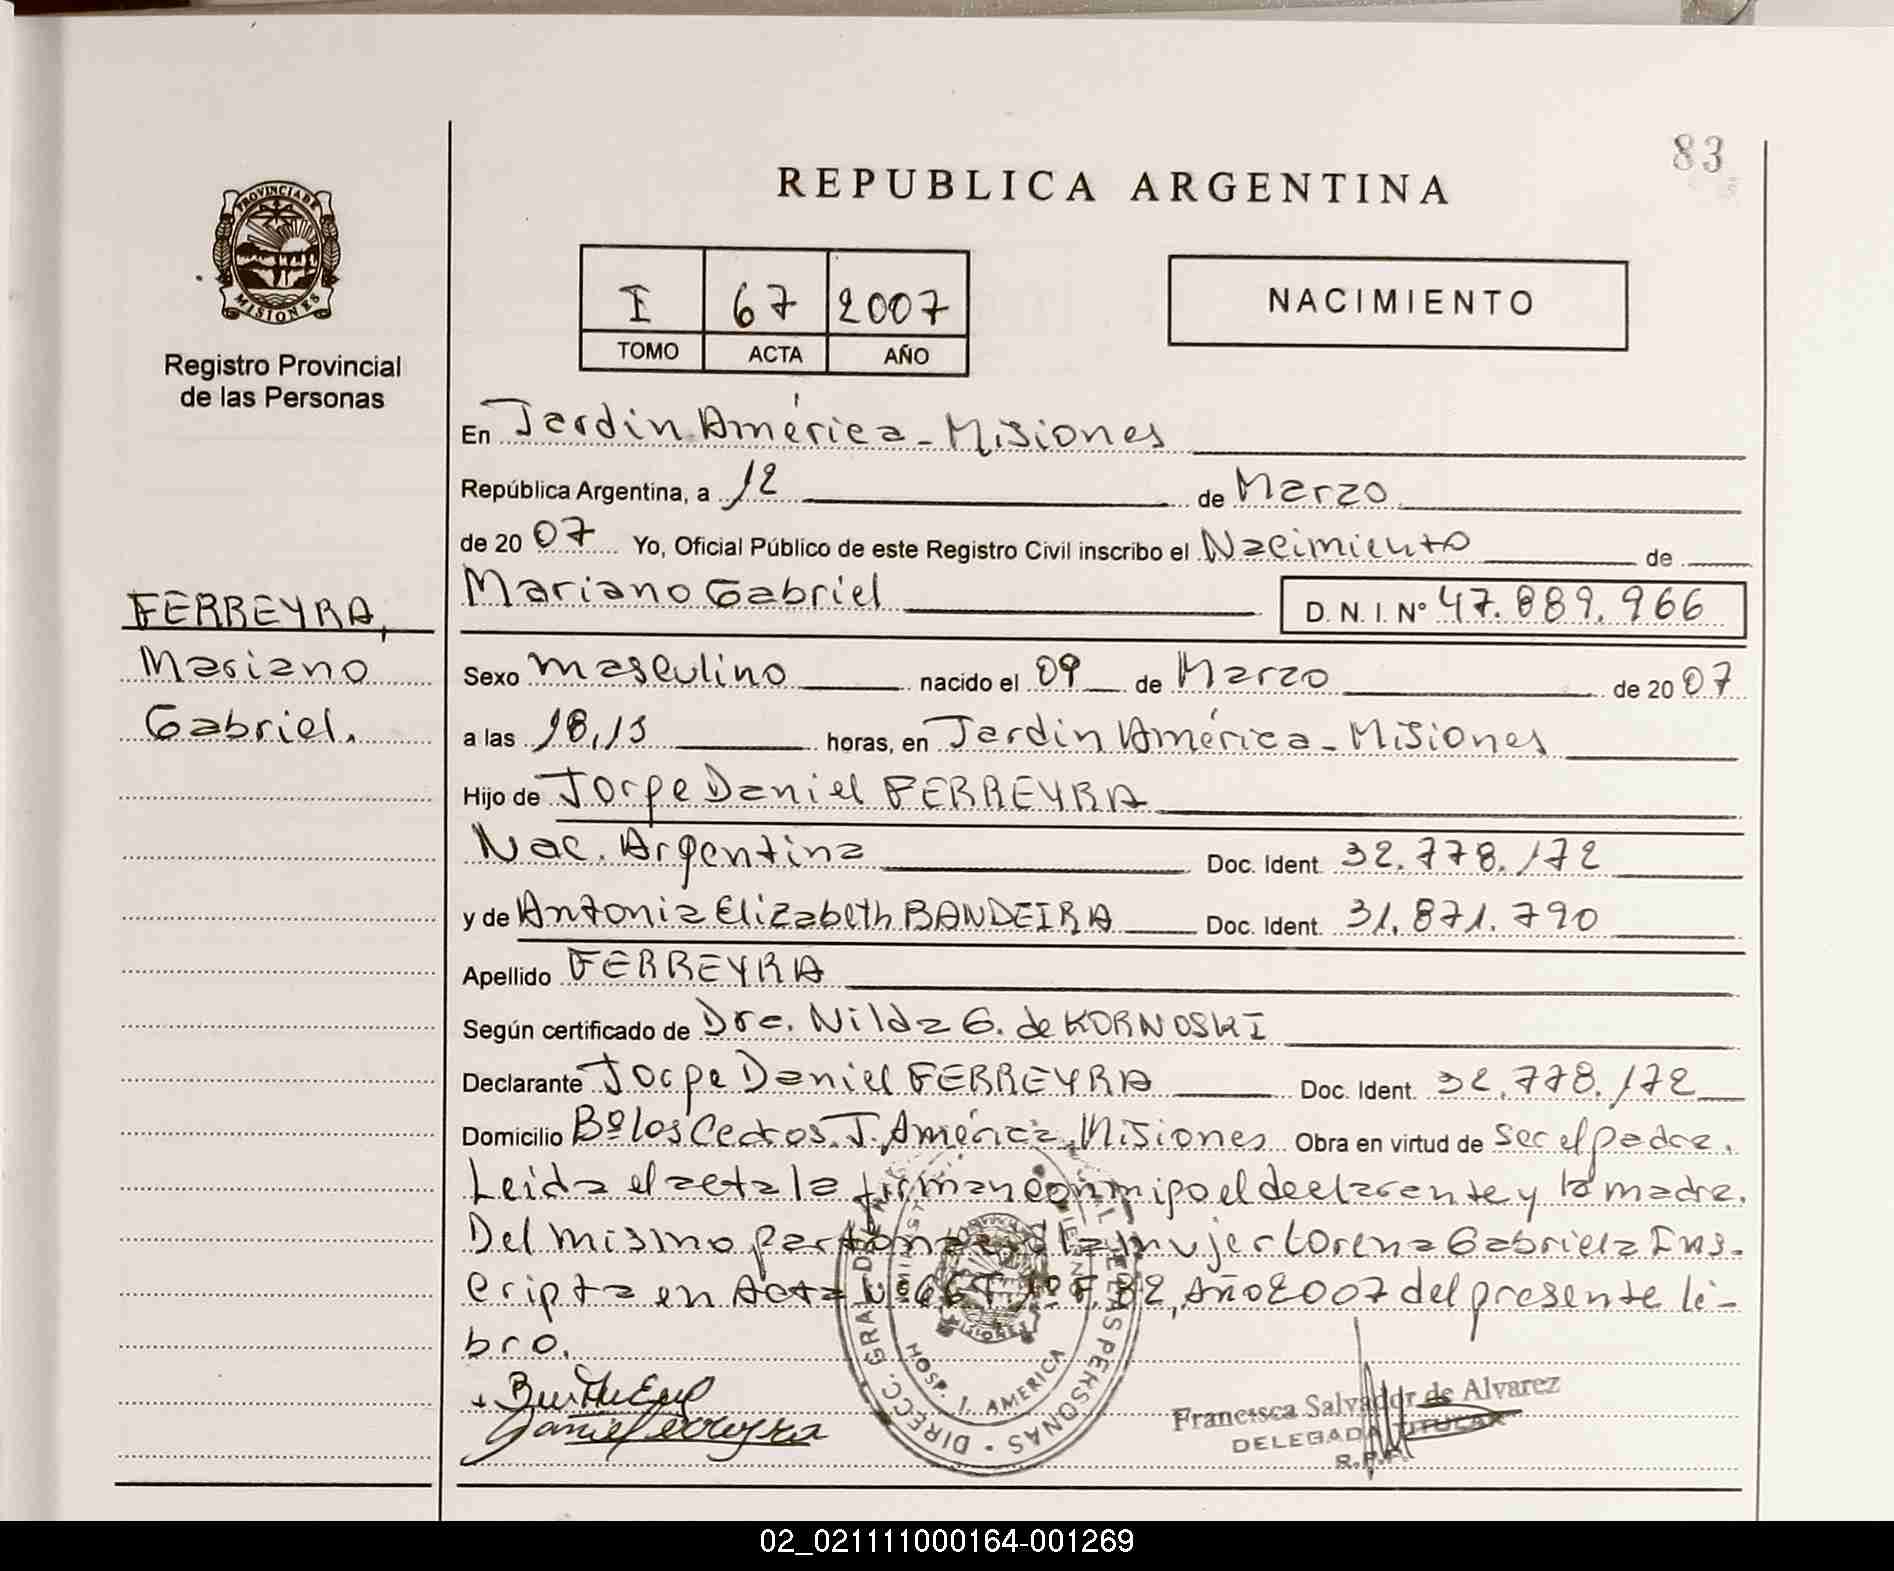 83
REPUBLICA ARGENTINA
PROVINCIA DE
MISIONES
Registro Provincial
de las Personas
I 67 2007
TOMO ACTA AÑO
NACIMIENTO
En Jardin América - Misiones
República Argentina, a 12 de Marzo
de 20 07 Yo, Oficial Público de este Registro Civil inscribo el Nacimiento de
Mariano Gabriel D. N. I. Nº 47.889.966
FERREYRA,
Mariano
Gabriel.
Sexo masculino nacido el 09 de Marzo de 20 07
a las 18,13 horas, en Jardin América - Misiones
Hijo de Jorge Daniel FERREYRA
Nac. Argentina Doc. Ident. 32.778.172
y de Antonia Elizabeth BANDEIRA Doc. Ident. 31.871.790
Apellido FERREYRA
Según certificado de Dra. Nilda G. de KORNOSKI
Declarante Jorge Daniel FERREYRA Doc. Ident. 32.778.172
Domicilio Bº los Cedros. J. América, Misiones Obra en virtud de ser el padre.
Leida el acta la firman conmigo el declarante y la madre.
Del mismo parto nació la mujer Lorena Gabriela Ins-
cripta en Acta Nº 66 T 1º F. 82, Año 2007 del presente li-
bro.
DIRECC. GRAL. DE PERSONAS
HOSP. J. AMERICA
MISIONES
Daniel Ferreyra
Francisca Salvador de Alvarez
DELEGADA TITULAR
R.P.P.
02_021111000164-001269